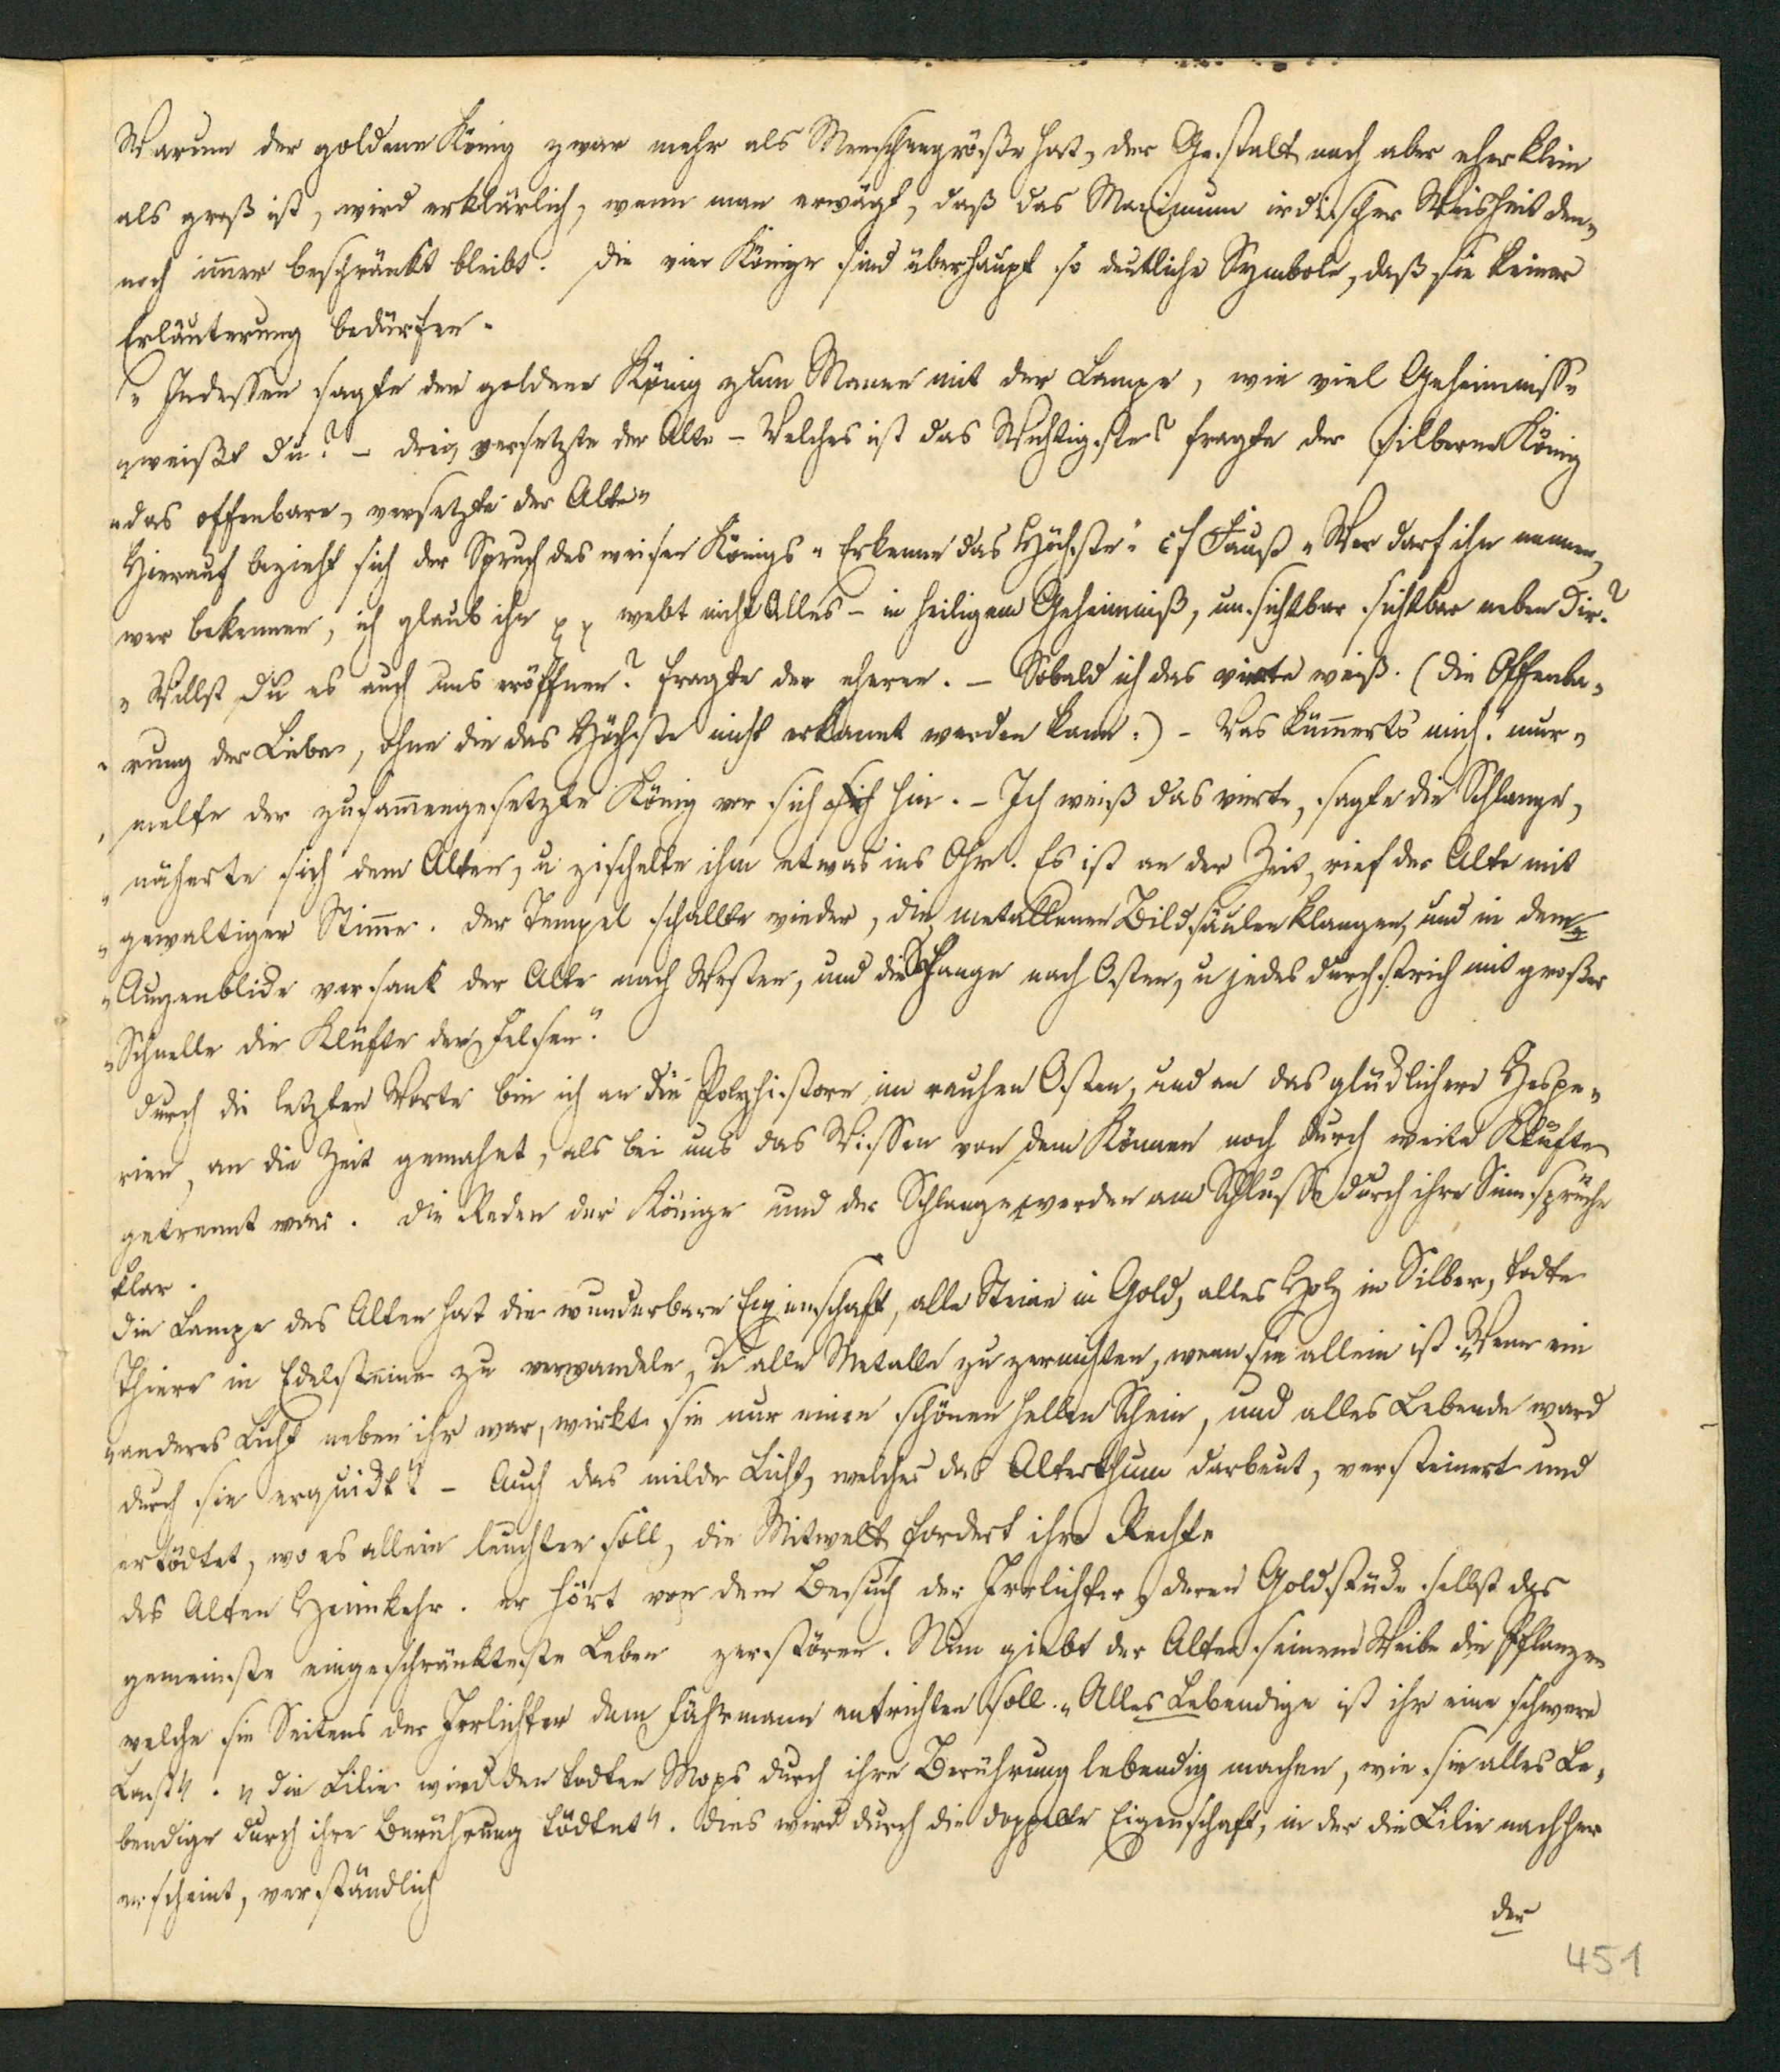 Warum der goldene König zwar mehr als Menschengröße hat, der Gestalt nach aber eher klein
als groß ist, wird erklärlich, wenn man erwägt, daß das Maximum irdischer Weisheit den„
noch immer beschränkt bleibt. Die vier Könige sind überhaupt so deutliche Symbole, daß sie keiner
Erläuterung bedürfen.
„Indessen sagte der goldene König zum Manne mit der Lampe, wie viel Geheimnisse
„weißt du? – drei, versetzte der Alte – Welches ist das Wichtigste? fragte der silberne König
„das offenbare, versetzte der Alte„
Hierauf bezieht sich der Spruch des weisen Königs „Erkenne das Höchste“ cf Faust „Wer darf ihn nennen,
wer bekennen, ich glaub ihn xx webt nicht Alles – in heiligem Geheimniß, unsichtbar sichtbar neben Dir?
„Willst du es auch uns eröffnen? fragte der eherne. – Sobald ich das vierte weiß. (die Offenba„
„rung der Liebe, ohne die das Höchste nicht erkannt werden kann.) – Was kümmerts mich! mur„
„melte der zusammengesetzte König vor sich hin. – Ich weiß das vierte, sagte die Schlange,
„näherte sich dem Alten, u zischelte ihm etwas ins Ohr. Es ist an der Zeit, rief der Alte mit
„gewaltiger Stimme. Der Tempel schallte wieder, die metallenen Bildsäulen klangen, und in dem
„Augenblicke versank der Alte nach Westen, und die Schlange nach Osten, u jedes durchstrich mit großer
„Schnelle die Klüfte der Felsen“.
Durch die letzten Worte bin ich an die Polyhistore im rauhen Osten, und an das glücklichere Hespe„
rien, an die Zeit gemahnt, als bei uns das Wissen von dem Können noch durch weite Klüfte
getrennt war. Die Reden der Könige und der Schlange werden am Schlusse durch ihre Sinnsprüche
klar.
Die Lampe des Alten hat die wunderbare Eigenschaft, alle Steine in Gold, alles Holz in Silber, todte
Thiere in Edelsteine zu verwandeln, u alle Metalle zu zernichten, wenn sie allein ist. „Wenn ein
„anderes Licht neben ihr war, wirkte sie nur einen schönen hellen Schein, und alles Lebende ward
durch sie erquickt“. – Auch das milde Licht, welches das Alterthum darbeut, versteinert und
ertödtet, wo es allein leuchten soll, die Mitwelt fordert ihre Rechte
des Alten Heimkehr. er hört von dem Besuch der Irrlichter, deren Goldstücke selbst das
gemeinste eingeschränkteste Leben zerstören. Nun giebt der Alte seinem Weibe die Pflanzen
welche sie Seitens der Irrlichter dem Fährmann entrichten soll. „Alles Lebendige ist ihr eine schwere
Last“. „Die Lilie wird den todten Mops durch ihre Berührung lebendig machen, wie sie alles Le„
bendige durch ihre Berührung tödtet“. Dies wird durch die doppelte Eigenschaft, in der die Lilie nachher
erscheint, verständlich
der
451